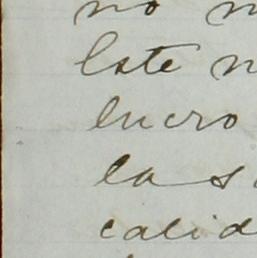 no
Este
lucro
la
calid